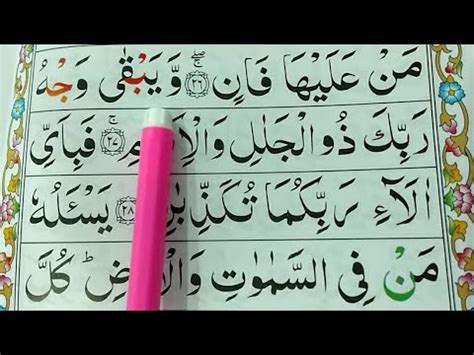 مَنْ عَلَيْهَا فَانٍ ۚۖ ۝٢٦ وَّيَبْقٰى وَجْهُ
رَبِّكَ ذُو الْجَلٰلِ ۚ ۝٢٧ فَبِاَيِّ
اٰلَآءِ رَبِّكُمَا تُكَذِّبٰنِ ۝٢٨ يَسْـَٔلُهٗ
مَنْ فِي السَّمٰوٰتِ وَالْاَرْضِ ؕ كُلَّ